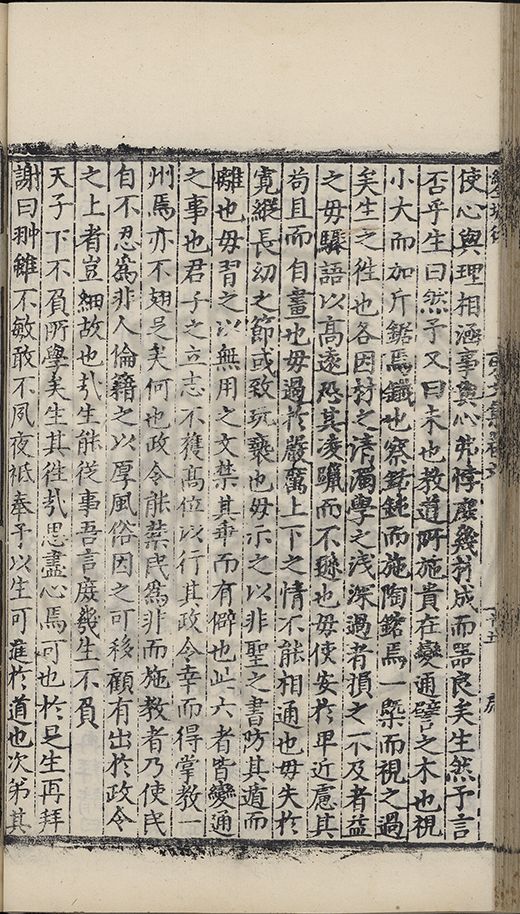 使心與理相涵事與心弗悖庶幾有成而器良矣生然予言
否乎生曰然予又曰未也教道所施貴在變通譬之木也視
小大而加斤鋸焉鐵也察銛鈍而施陶鎔焉一槩而視之過
矣生之徃也各因材之清濁學之淺深過者損之不及者益
之毋驟語以高遠恐其凌躐而不遜也毋使安於卑近慮其
苟且而自畫也毋過於嚴奮上下之情不能相通也毋失於
寬縱長幼之節或致玩䙝也毋示之以非聖之書防其遁而
離也毋習之以無用之文禁其乖而有僻也此六者皆變通
之事也君子之立志不獲髙位以行其政令幸而得掌教一
州焉亦不翅足矣何也政令能禁民爲非而施教者乃使民
自不忍爲非人倫籍之以厚風俗因之可移顧有出於政令
之上者豈細故也㢤生能從事吾言庶幾生不負
天子下不負所學矣生其徃㢤思盡心焉可也於是生再拜
謝曰翀雖不敏敢不夙夜袛奉予以生可進於道也次第其